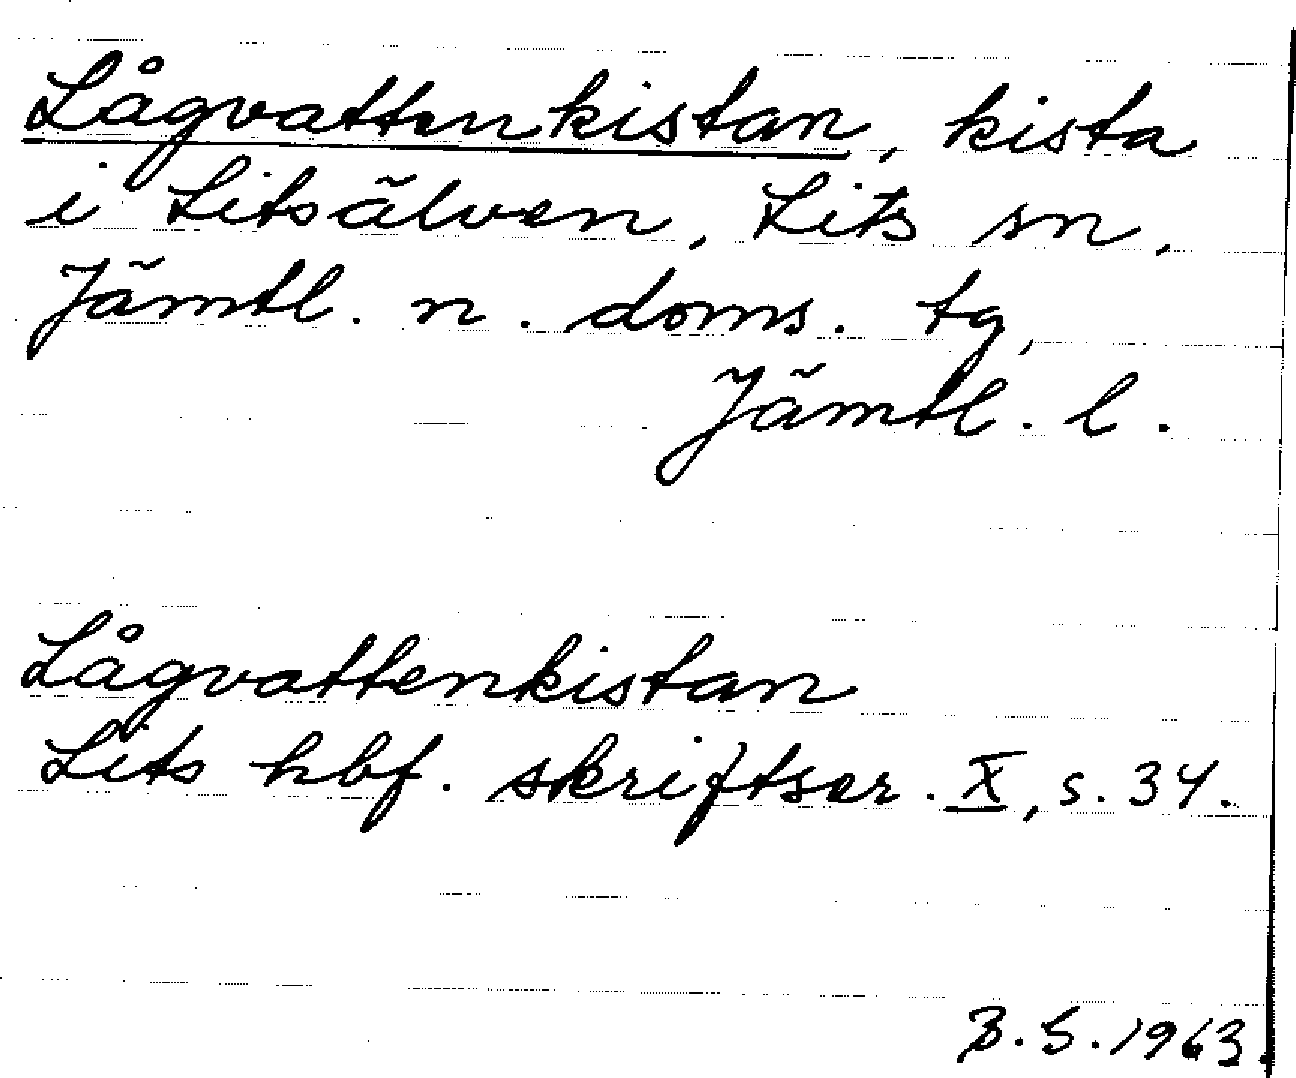 Lågvattenkistan, kista
i Litsälven, Lits sn,
Jämtl. n. doms. tg,
Jämtl. l.
Lågvattenkistan
Lits hbf. skriftser. X, s. 34.
B.S. 1963.